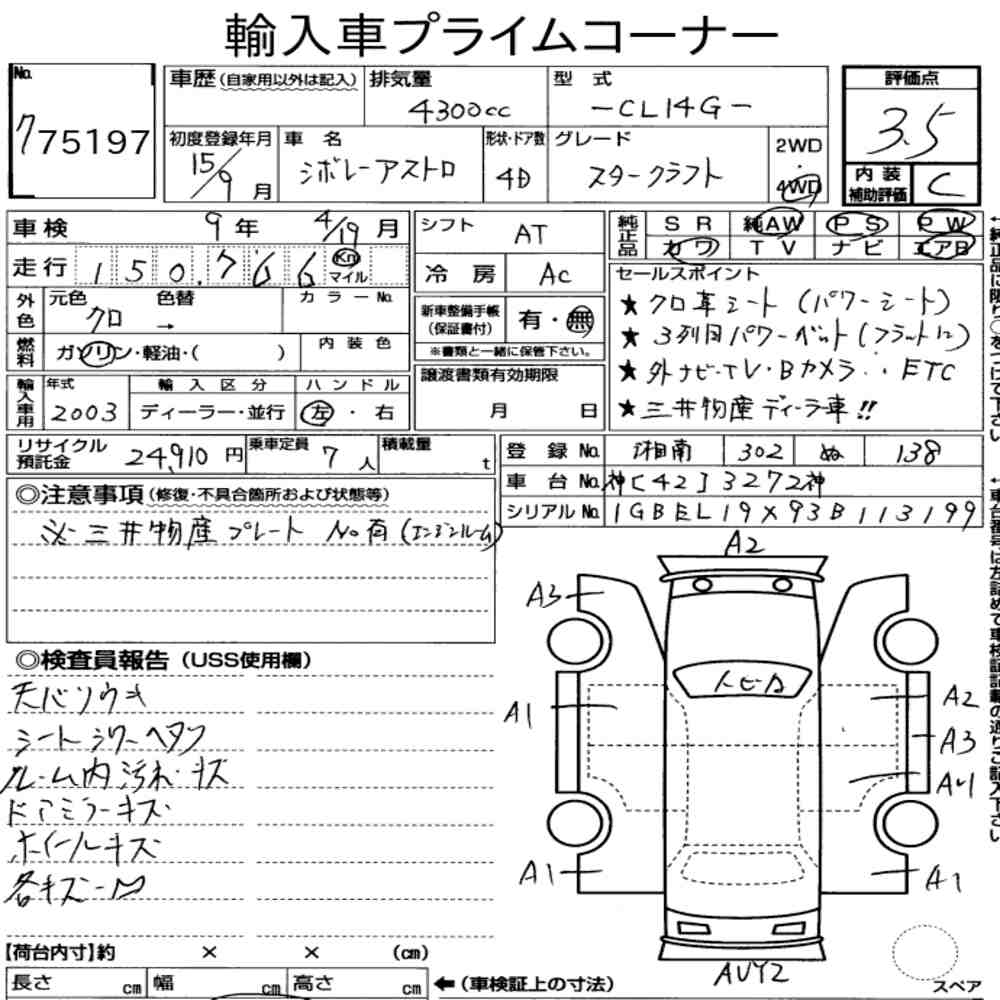 輸入車プライムコーナー
No.
775197
車歴(自家用以外は記入) 排気量 型式
4300cc -CL14G-
初度登録年月 車名 形状・ドア数 グレード
15/9月 シボレーアストロ 4D スタークラフト
2WD・4WD
評価点
3.5
内装補助評価 C
車検 9年 4/19月
走行 150.766 Km マイル
外色 元色 色替 カラーNo.
クロ →
燃料 ガソリン・軽油・( ) 内装色
輸入車用 年式 輸入区分 ハンドル
2003 ディーラー・並行 左・右
シフト AT
冷房 AC
新車整備手帳(保証書付) 有・無
※書類と一緒に保管下さい。
譲渡書類有効期限
月 日
純正品 SR 純AW PS PW
カワ TV ナビ エアB
セールスポイント
★クロ革シート(パワーシート)
★3列目パワーベット(フラットに)
★外ナビ・TV・Bカメラ・・ETC
★三井物産ディーラ車!!
リサイクル預託金 24,910円 乗車定員 7人 積載量 t
登録No. 湘南 302 ぬ 138
車台No. 神[42]3272神
シリアルNo. 1GBEL19X93B113199
◎注意事項(修復・不具合箇所および状態等)
※三井物産プレートNo有(エンジンルーム)
◎検査員報告(USS使用欄)
天バリソウキ
シートシワーヘタリ
ルーム内汚れ・キズ
ドアミラーキズ
ホイールキズ
各キズー凹
A2
A3
トビA
A1
A2
A3
A4
A1
A1
AUY2
スペア
【荷台内寸】約 × × (cm)
長さ cm 幅 cm 高さ cm ←(車検証上の寸法)